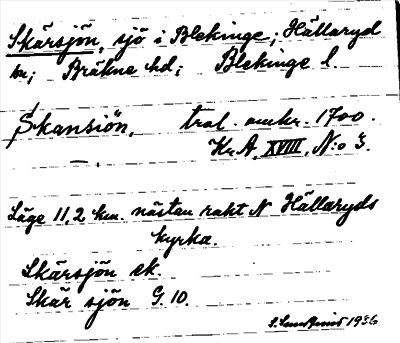 Skärsjön, sjö i Blekinge; Hällaryd
sn; Bräkne hd; Blekinge l.
Skansiön, trol. omkr. 1700.
Kr. A. XVIII, N:o 3.
Läge 11,2 km. nästan rakt N Hällaryds
kyrka.
Skärsjön ek.
Skär sjön G. 10.
1936